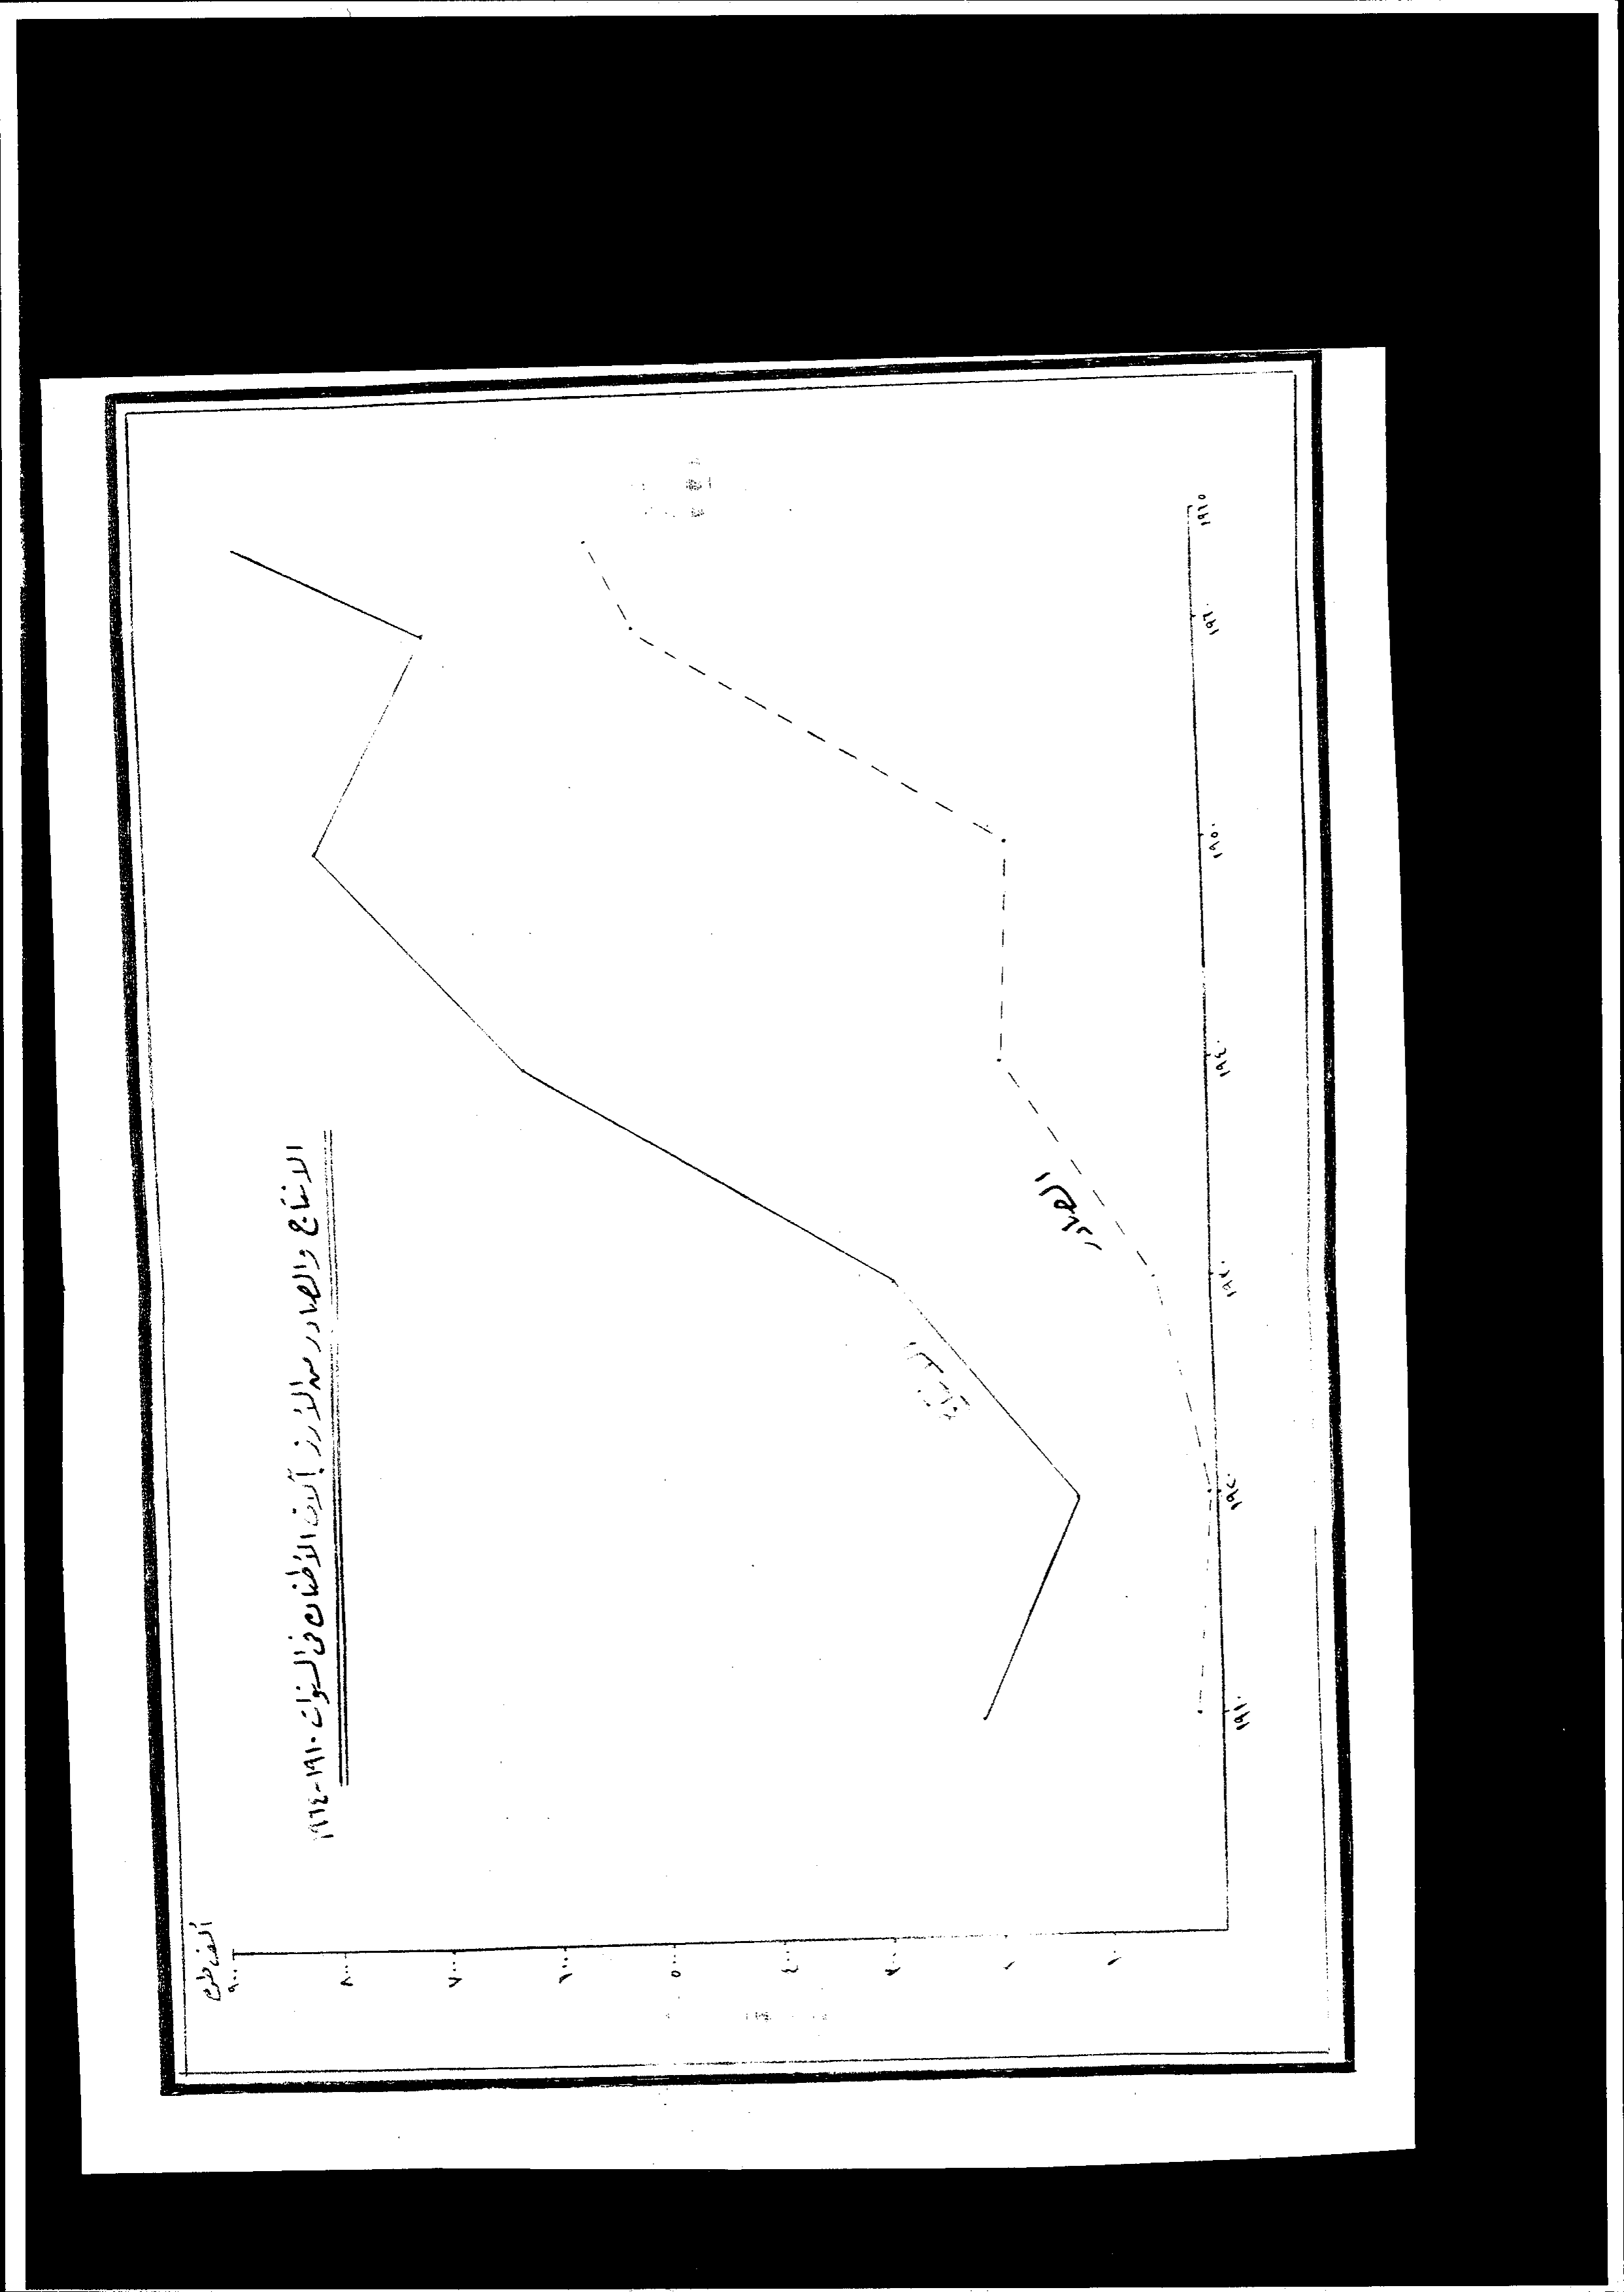 الانتاج والصادر من الأرز بآلاف الأطنان فى السنوات ١٩١٠-١٩٦٤
ألف طن
٩٠٠
٨٠٠
٧٠٠
٦٠٠
٥٠٠
٤٠٠
٣٠٠
١٠٠
الانتاج
الصادر
١٩١٠
١٩٢٠
١٩٣٠
١٩٤٠
١٩٥٠
١٩٦٠
١٩٦٥